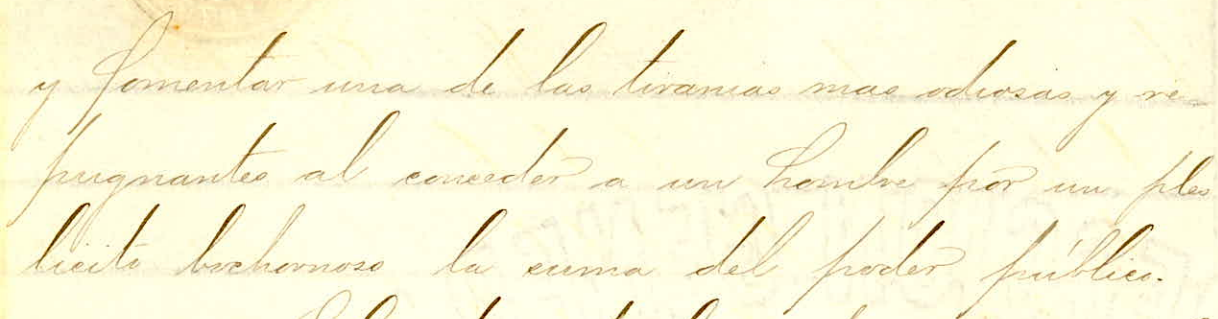 y fomentar una de las tiranias mas odiosas y re-
pugnantes al conceder a un hombre por un ples
licito bochornoso la suma del poder público.